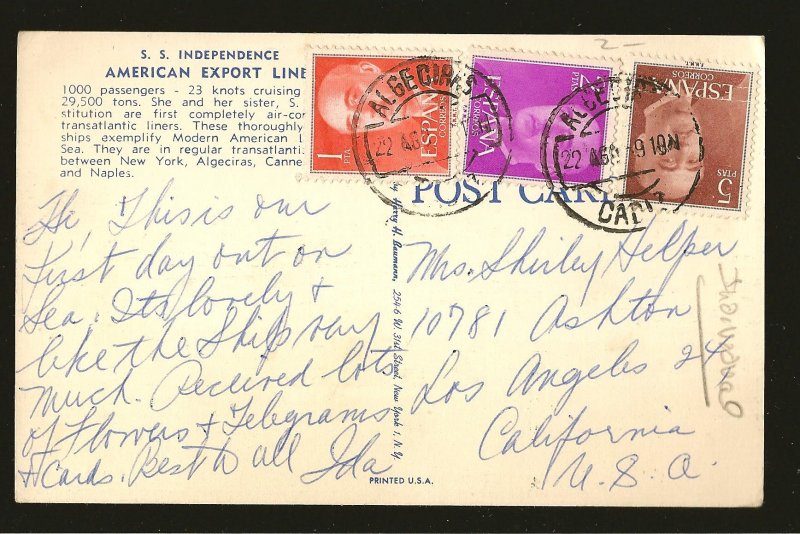 S. S. INDEPENDENCE
AMERICAN EXPORT LINE
1000 passengers - 23 knots cruising
29,500 tons. She and her sister, S.
stitution are first completely air-con
transatlantic liners. These thoroughly
ships exemplify Modern American L
Sea. They are in regular transatlanti
between New York, Algeciras, Canne
and Naples.
1
PTA
CORREOS
ESPAÑA
2
PTAS
CORREOS
ESPAÑA
5
PTAS
CORREOS
ESPAÑA
ALGECIRAS
22 AGO
ALGECIRAS
22 AGO 9 10N
CADIZ
2-
POST CARD
Hi, This is our
first day out on
Sea. Its lovely +
like the Ship very
much. Received lots
of Flowers + Telegrams
+ Cards. Best to all Ida
by Harry H. Baumann, 254-6 W. 31st Street, New York 1, N.Y.
Mrs. Shirley Helper
10781 Ashton
Los Angeles 24
California
U. S. A.
PRINTED U.S.A.